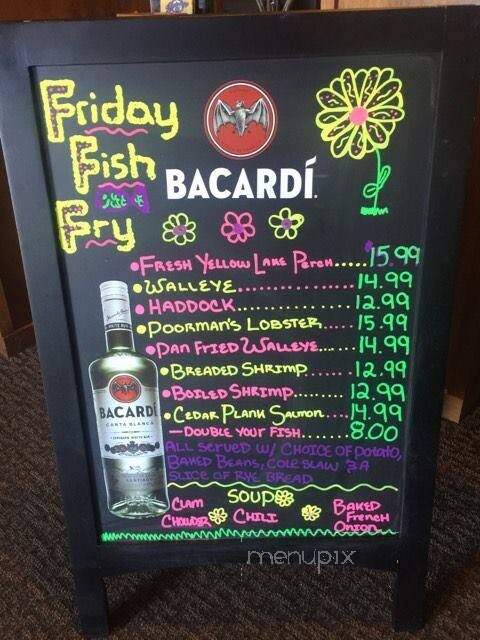 Friday
Fish
Fry
BACARDÍ
•Fresh Yellow Lake Perch.....15.99
•Walleye...............14.99
•Haddock...............12.99
•Poorman's Lobster....15.99
•Pan Fried Walleye.....14.99
•Breaded Shrimp......12.99
•Boiled Shrimp........12.99
•Cedar Plank Salmon...14.99
—Double your Fish......8.00
All served w/ choice of potato,
Baked Beans, Cole slaw & a
slice of Rye Bread
Soups
Clam
Chowder
Chili
Baked
French
Onion
BACARDÍ
CARTA BLANCA
menupix